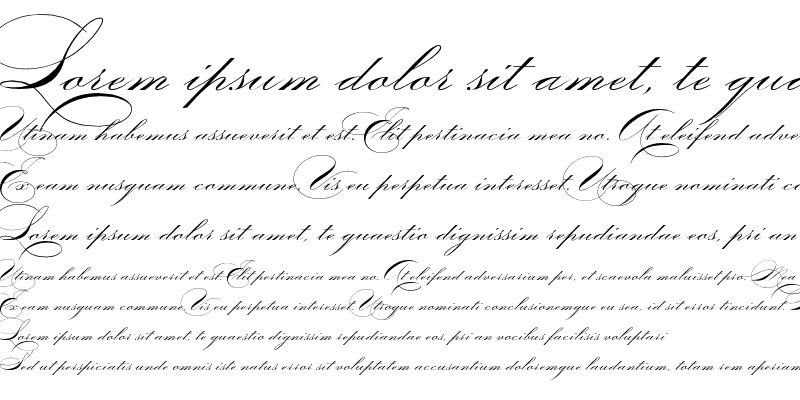 Lorem ipsum dolor sit amet, te qua
Utinam habemus assueverit et est. Elit pertinacia mea no. At eleifend adve
Ex eam nusquam commune. Vis eu perpetua interesset. Utroque nominati co
Lorem ipsum dolor sit amet, te quaestio dignissim repudiandae eos, pri an
Utinam habemus assueverit et est. Elit pertinacia mea no. At eleifend adversarium per, et scaevola maluisset pro. Mea
Ex eam nusquam commune. Vis eu perpetua interesset. Utroque nominati conclusionemque eu sea, id sit error tincidunt.
Lorem ipsum dolor sit amet, te quaestio dignissim repudiandae eos, pri an vocibus facilisis voluptari
Sed ut perspiciatis unde omnis iste natus error sit voluptatem accusantium doloremque laudantium, totam rem aperiam